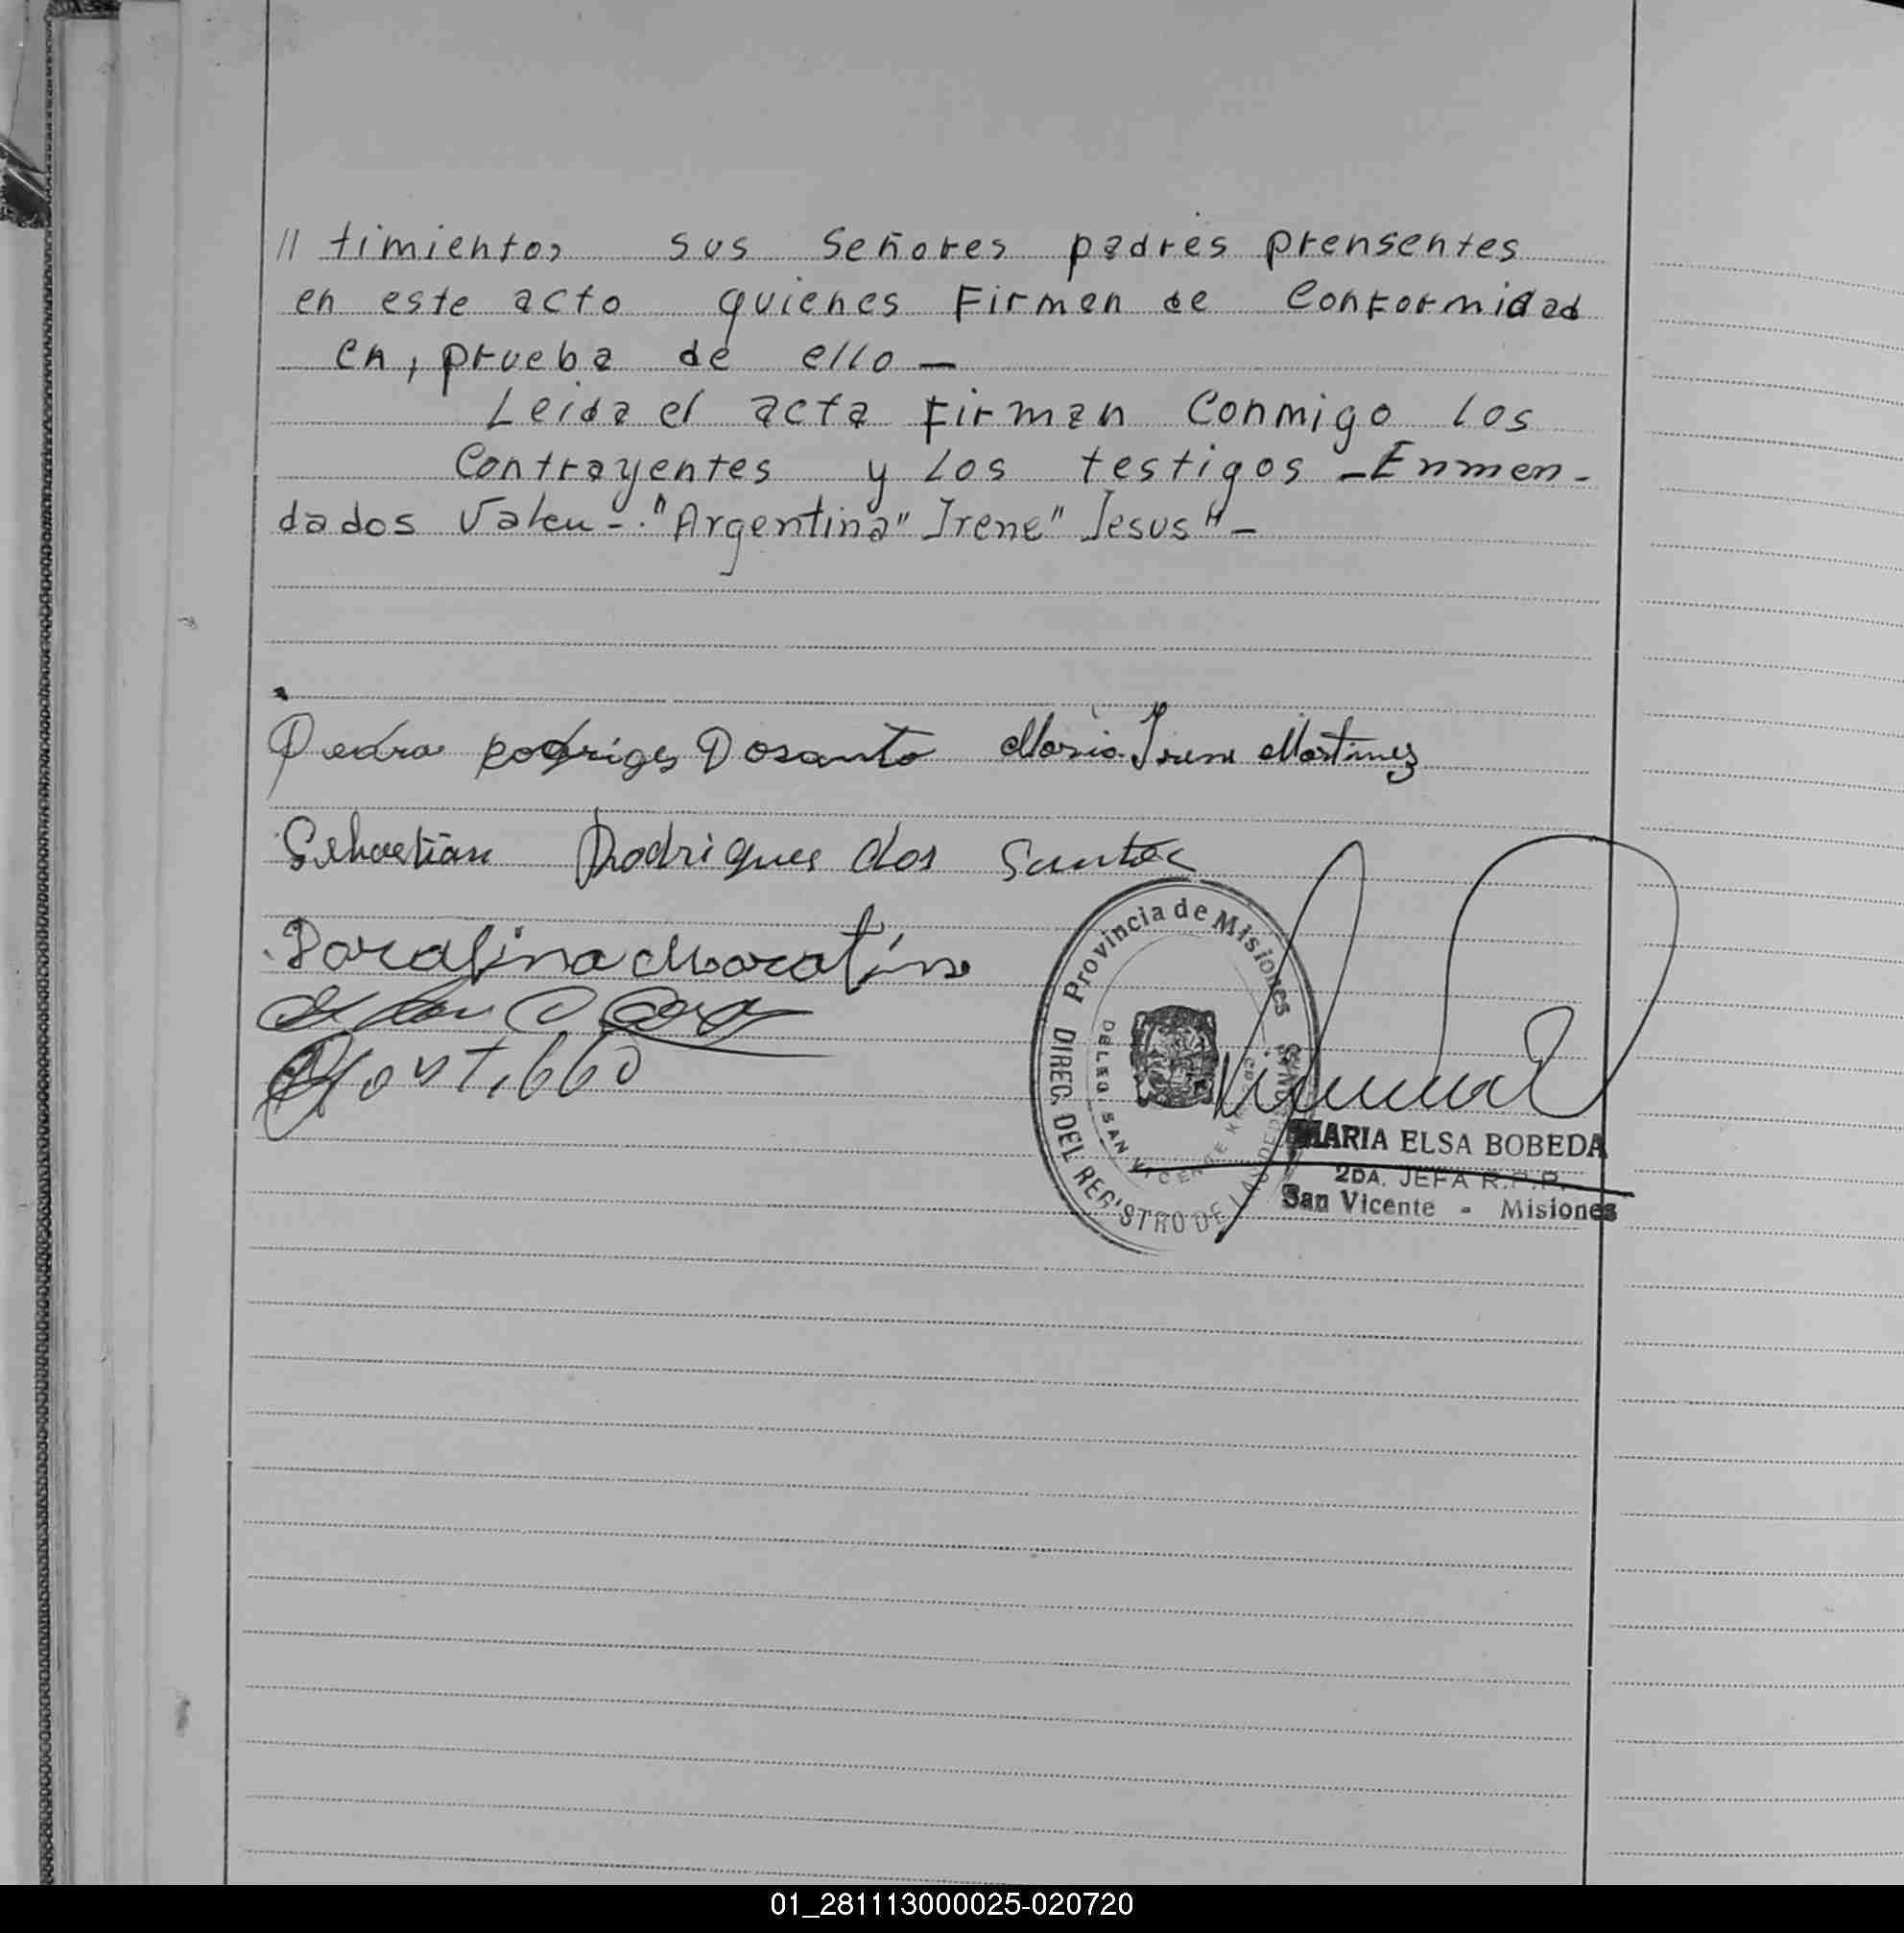 // timientos sus Señores padres prensentes
en este acto quienes Firmen de Conformidad
en, prueba de ello —
Leida el acta Firman Conmigo los
Contrayentes y Los testigos - Enmen-
dados Valen -. "Argentina" Irene" Jesus" -
Pedro Rodriges Dosanto Maria Irene Martinez
Sebastian Rodrigues dos Santos
Provincia de Misiones
DIREC. DEL REGISTRO DE LAS
DELEG. SAN VICENTE
MARIA ELSA BOBEDA
2DA. JEFA R.P.P.
San Vicente - Misiones
01_281113000025-020720